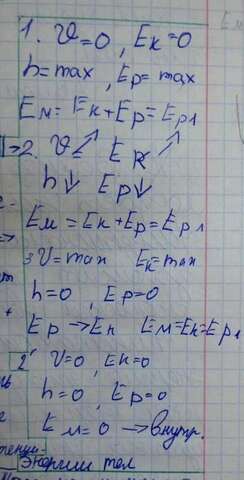 1. υ=0, Eк=0
h=max, Ep=max
Eм=Eк+Ep=Ep1
2. υ↗ Eк↗
h↓ Ep↓
Eм=Eк+Ep=Ep1
3 υ=max Eк=max
h=0, Ep=0
Ep→Eк Eм=Eк=Ep1
2' υ=0, Eк=0
h=0, Ep=0
Eм=0 →внутр.
энергии тел